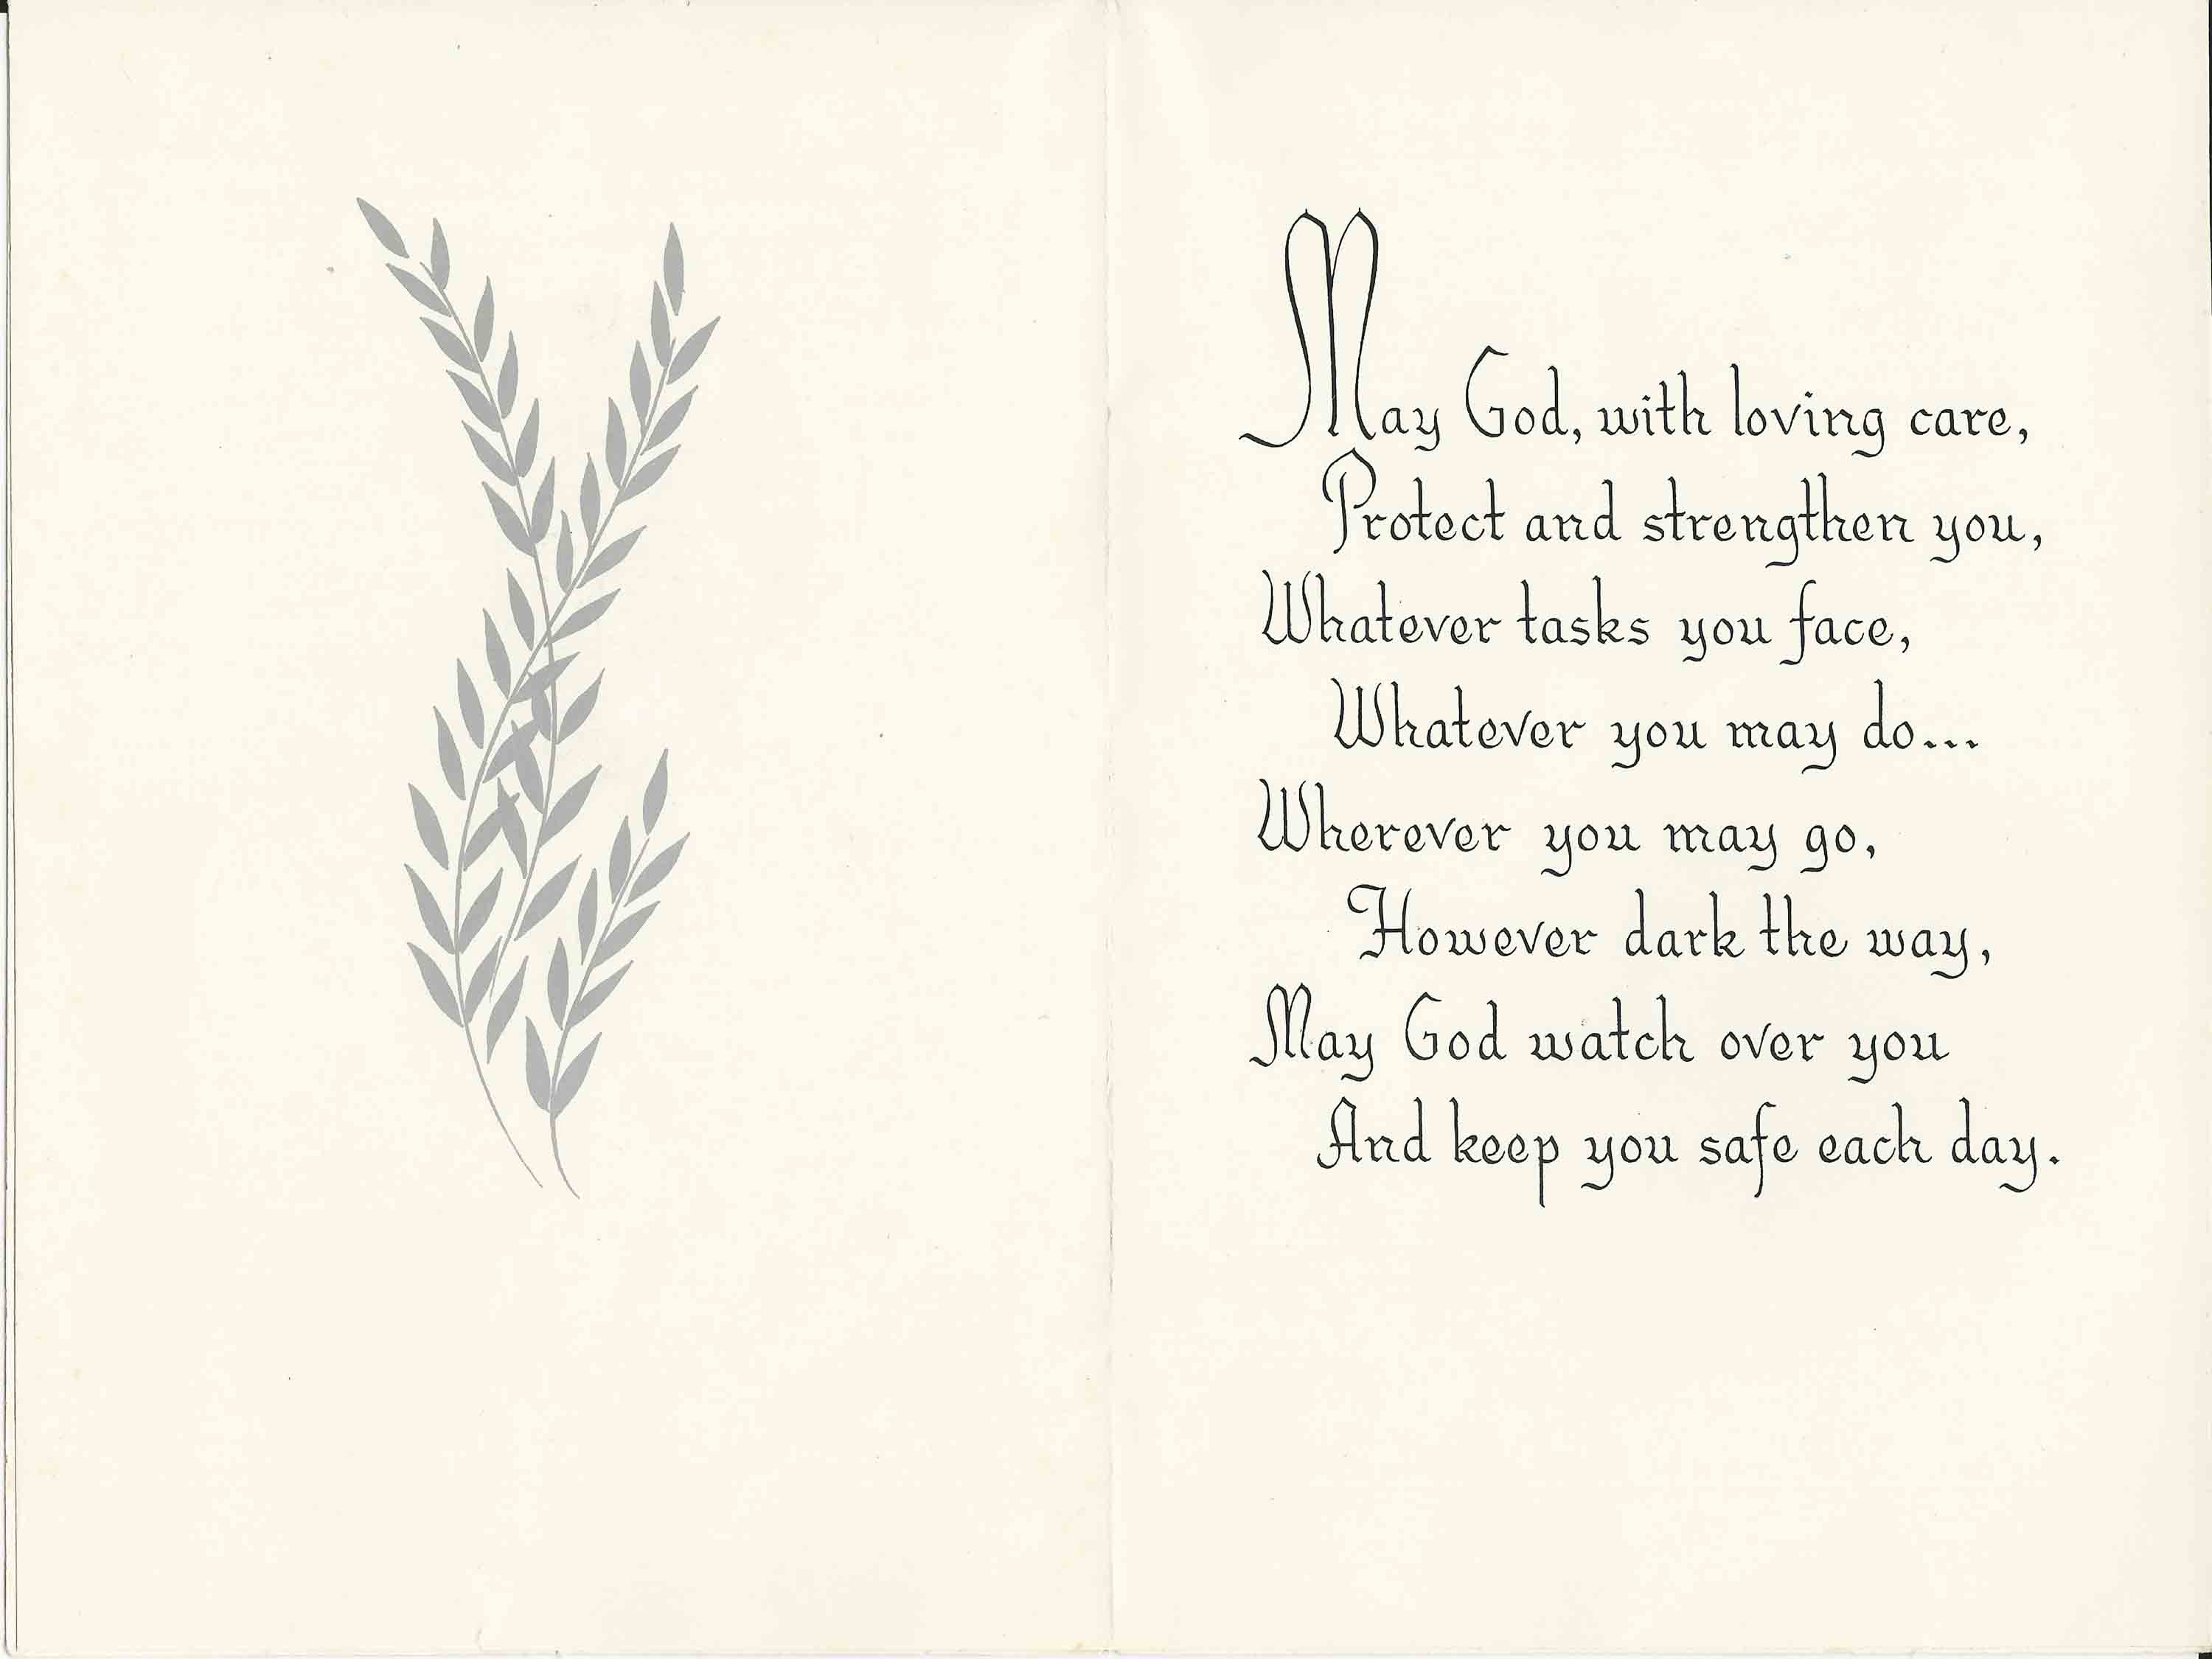 May God, with loving care,
Protect and strengthen you,
Whatever tasks you face,
Whatever you may do...
Wherever you may go,
However dark the way,
May God watch over you
And keep you safe each day.